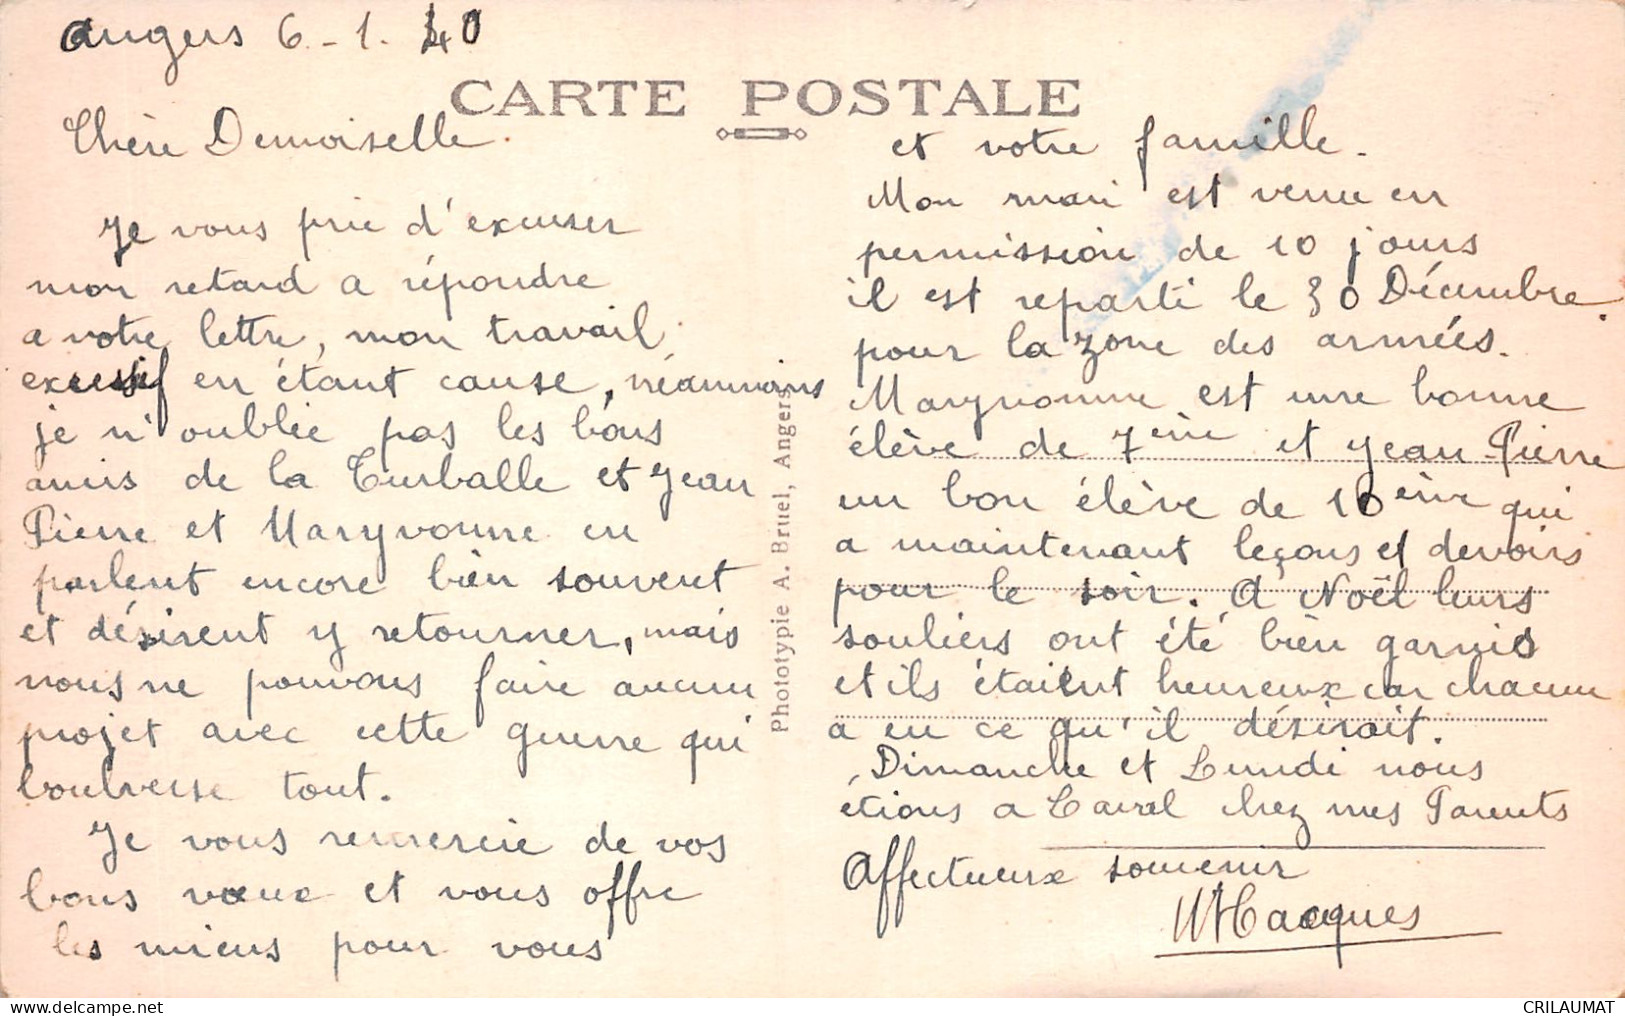 Angers 6-1-40
CARTE POSTALE
Chère Demoiselle.
Je vous prie d'excuser
mon retard a répondre
a votre lettre, mon travail
excessif en étant cause, néanmoins
je n'oublie pas les bons
amis de la Turballe et Jean
Pierre et Maryvonne en
parlent encore bien souvent
et désirent y retourner, mais
nous ne pouvons faire aucun
projet avec cette guerre qui
boulverse tout.
Je vous remercie de vos
bons vœux et vous offre
les miens pour vous
Phototypie A. Bruel, Angers
et votre famille.
Mon mari est venu en
permission de 10 jours
il est reparti le 30 Décembre
pour la zone des armées.
Maryvonne est une bonne
élève de 7ème et Jean Pierre
un bon élève de 10ème qui
a maintenant leçons et devoirs
pour le soir. A Noël leurs
souliers ont été bien garnis
et ils étaient heureux car chacun
a eu ce qu'il désirait.
Dimanche et Lundi nous
étions a Laval chez mes Parents
Affectueux souvenir
CRILAUMAT